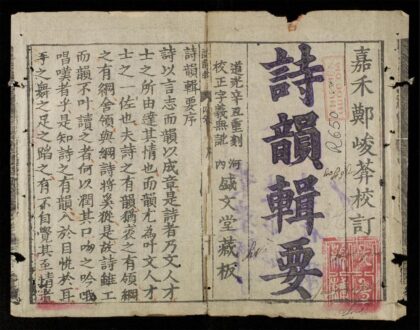 嘉禾鄭峻峯校訂
詩韻輯要
R650
道光辛丑重刻 河
校正字義無訛 內
盛文堂藏板
詩韻輯要序
詩以言志而韻以成章是詩者乃文人才
士之所由達其情也而韻尤為叶文人才
士之一佐也夫詩之有韻猶裘之有領網
之有綱舍領與綱詩將奚從是故詩雖工
而韻不叶讀之者何以潤其口吻之吟哦
唱嘆者乎是知詩之有韻入於目恍於耳
手之舞之足之蹈之有不自覺其至情者